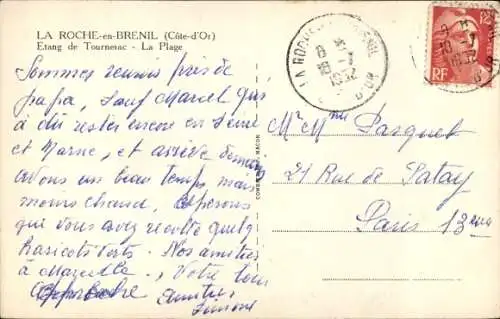 LA ROCHE-en-BRENIL (Côte-d'Or)
Etang de Tournesac - La Plage
Sommes réunis près de
papa, sauf Marcel qui
a dû rester encore en Seine
et Marne, et arrive demain
Avons un beau temps, mais
moins chaud. Espérons
que vous avez récolté quelq
haricots verts. Nos amitiés
à Marcelle. Votre
Simone
Mr Mme Pasquet
21 Rue de Patay
Paris 13ème
LA ROCHE BRENIL
D'OR
RF